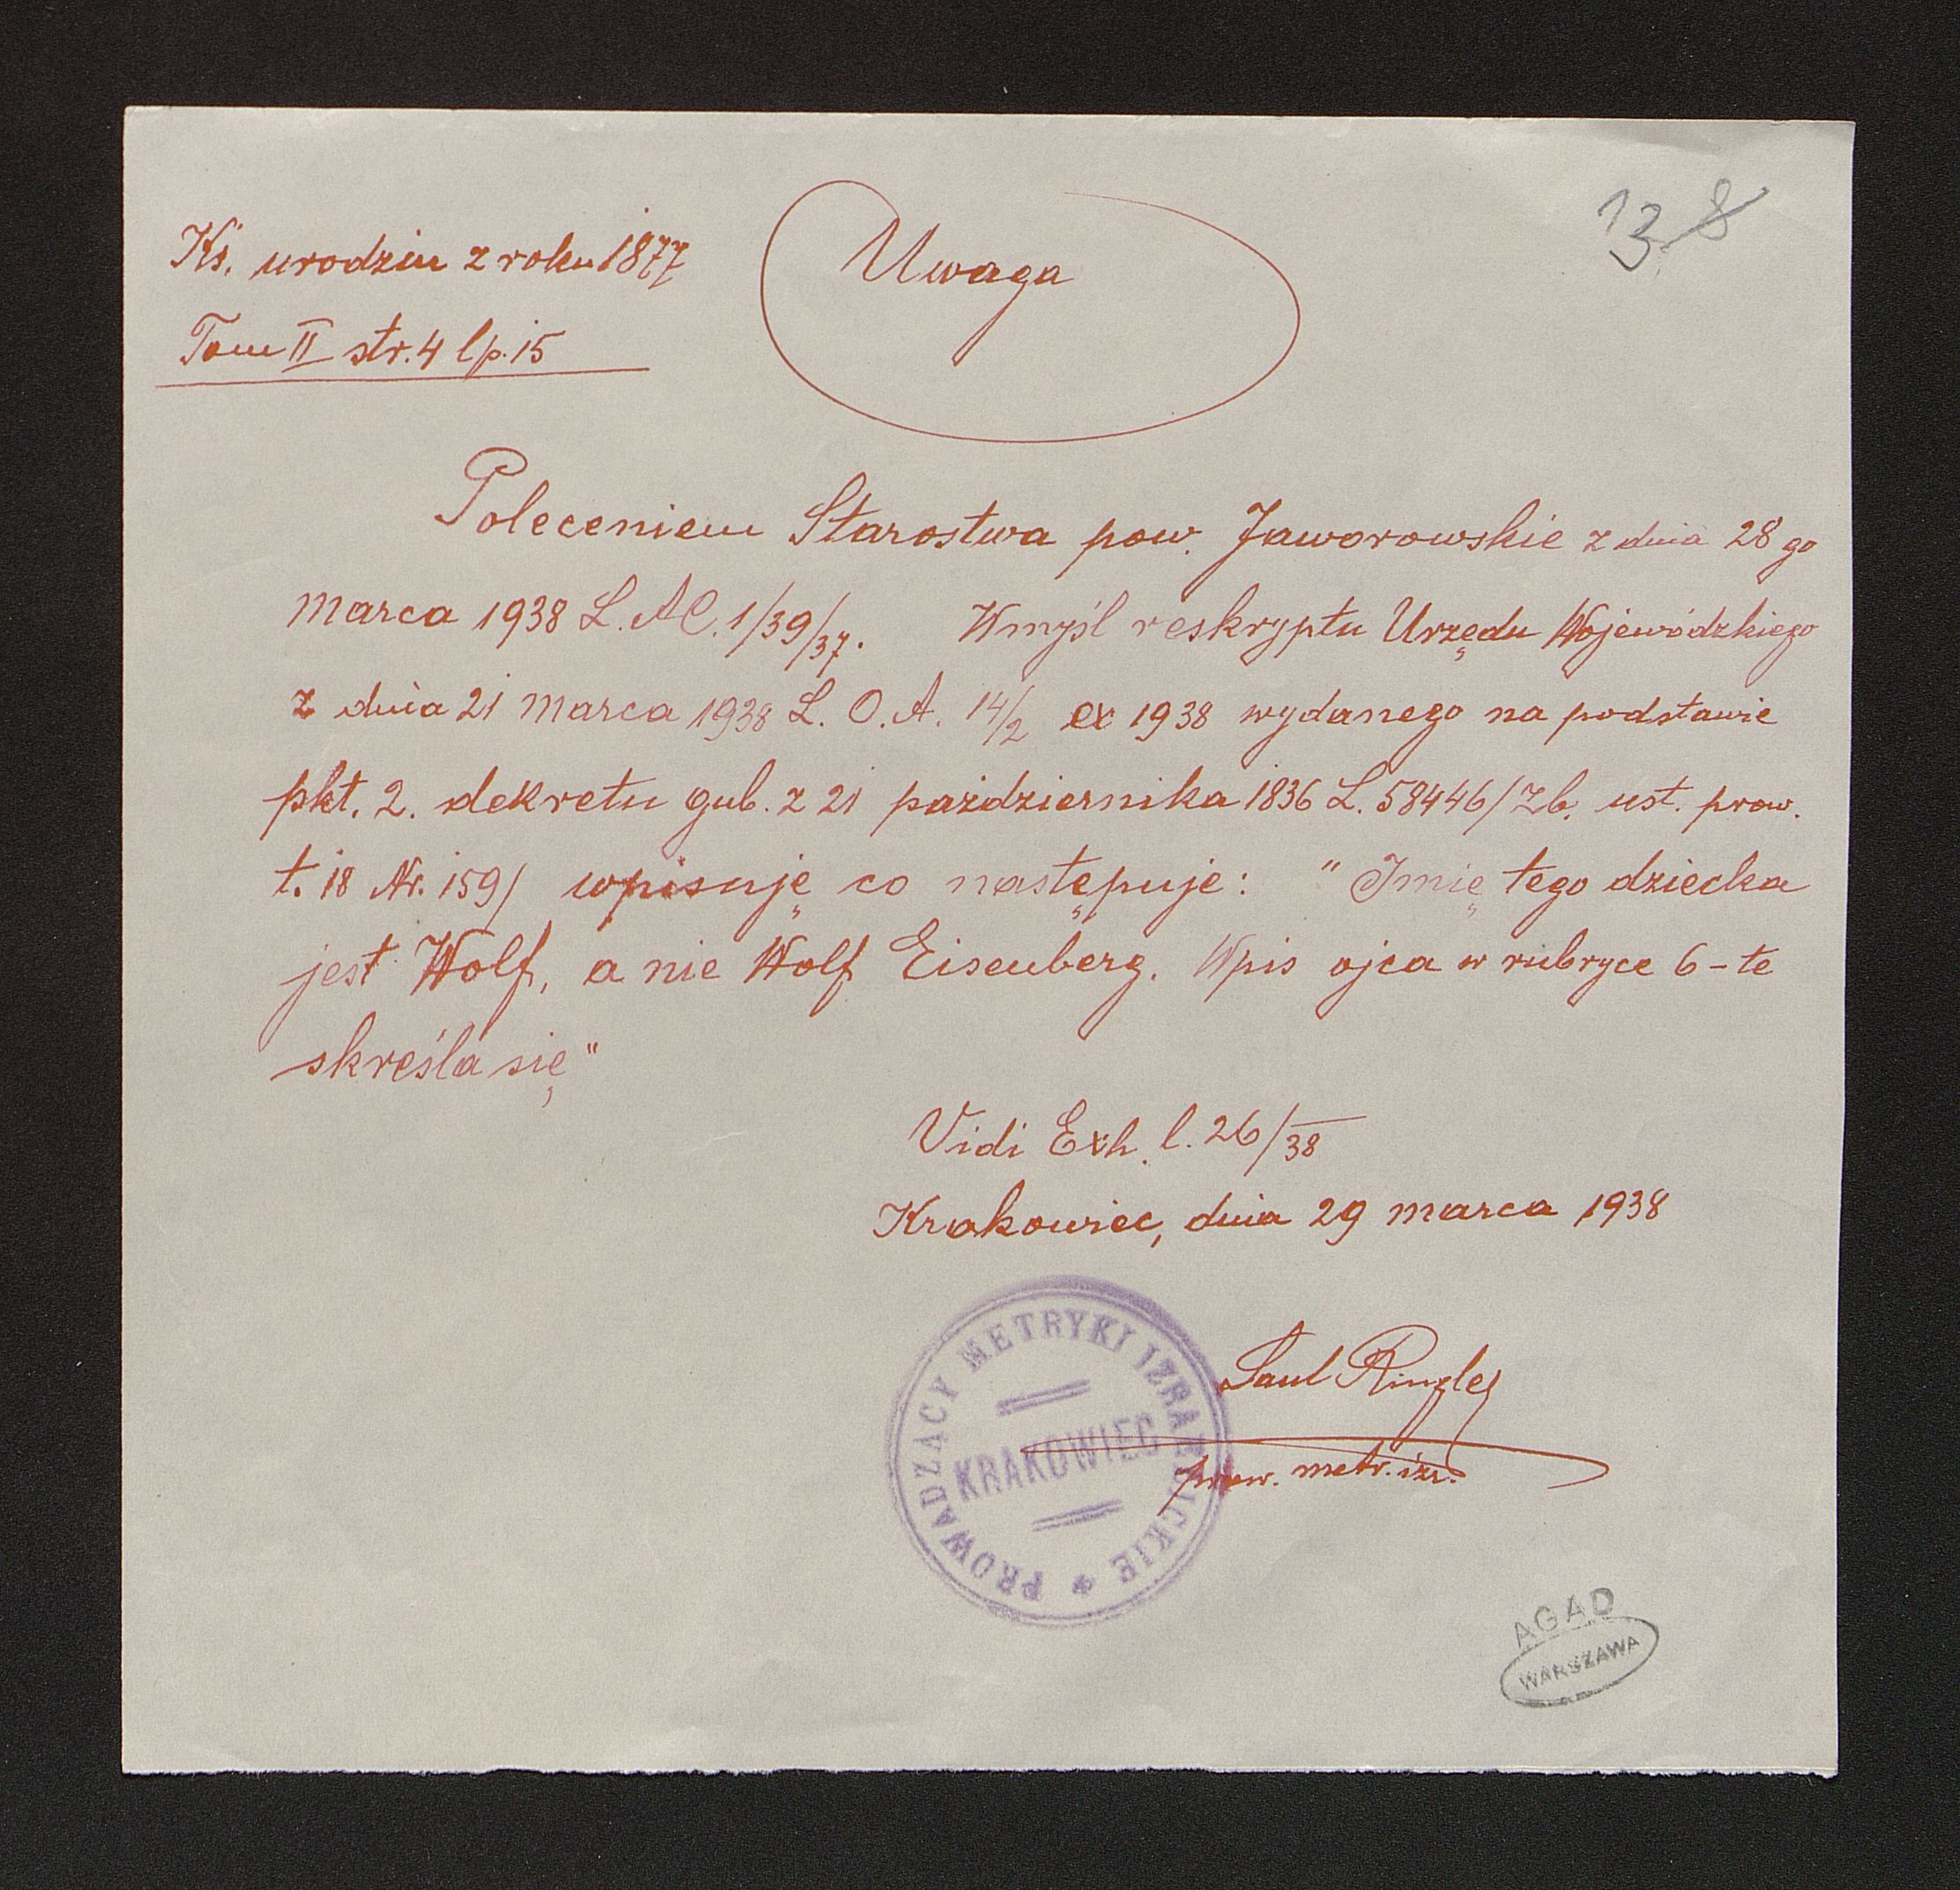 13 8
Ks. urodzin z roku 1877
Tom II str. 4 lp. 15
Uwaga
Poleceniem Starostwa pow. Jaworowskie z dnia 28 go
marca 1938 L. AC. 1/39/37. Wmyśl reskryptu Urzędu Wojewódzkiego
z dnia 21 marca 1938 L. O. A. 14/2 ex 1938 wydanego na podstawie
pkt. 2. dekretu gub. z 21 października 1836 L. 58446/Zb. ust. prow.
t. 18 Nr. 159/ wpisuję co następuje: "Imię tego dziecka
jest Wolf, a nie Wolf Eisenberg. Wpis ojca w rubryce 6-te
skreśla się"
Vidi Exh. l. 26/38
Krakowiec, dnia 29 marca 1938
Saul
prow. metr. izr.
PROWADZĄCY METRYKI IZRAELICKIE
KRAKOWIEC
AGAD
WARSZAWA